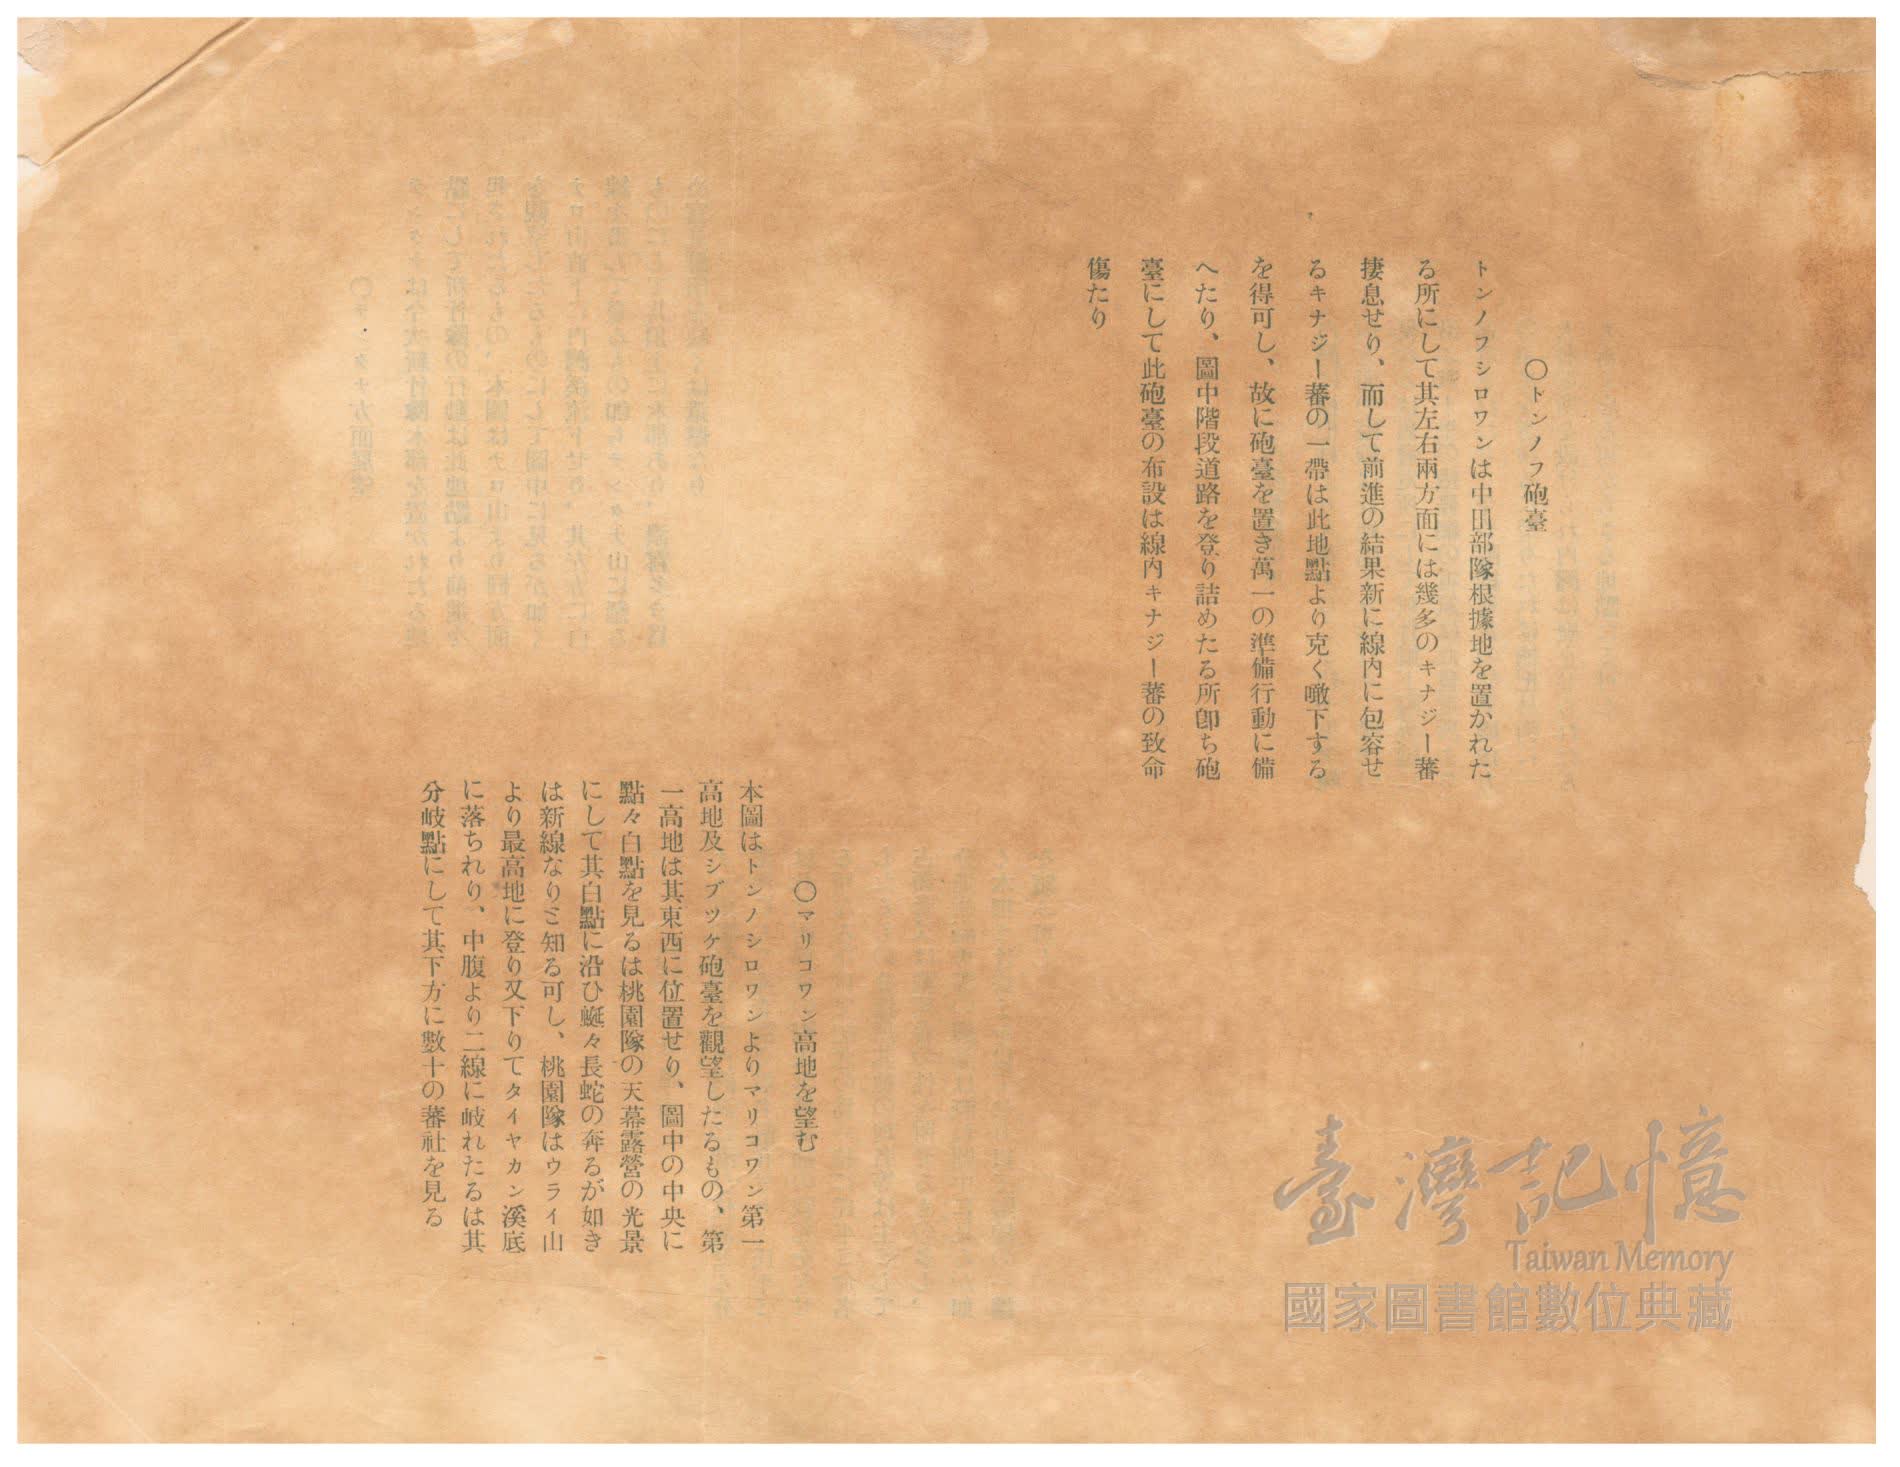 〇トンノフ砲臺
トンノフシロワンは中田部隊根據地を置かれた
る所にして其左右兩方面には幾多のキナジー蕃
捿息せり、而して前進の結果新に線内に包容せ
るキナジー蕃の一帶は此地點より克く瞰下する
を得可し、故に砲臺を置き萬一の準備行動に備
へたり、圖中階段道路を登り詰めたる所卽ち砲
臺にして此砲臺の布設は線内キナジー蕃の致命
傷たり
〇マリコワン高地を望む
本圖はトンノシロワンよりマリコワン第一
高地及シブツケ砲臺を觀望したるもの、第
一高地は其東西に位置せり、圖中の中央に
點々白點を見るは桃園隊の天幕露營の光景
にして其白點に沿ひ蜒々長蛇の奔るが如き
は新線なりと知る可し、桃園隊はウライ山
より最高地に登り又下りてタイヤカン溪底
に落ちれり、中腹より二線に岐れたるは其
分岐點にして其下方に數十の蕃社を見る
臺灣記憶
Taiwan Memory
國家圖書館數位典藏